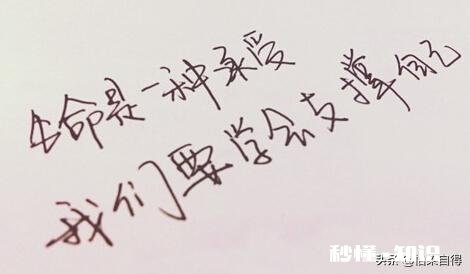 生命是一种承受
我们要学会支撑自己
秒懂知识
头条@怡然自得